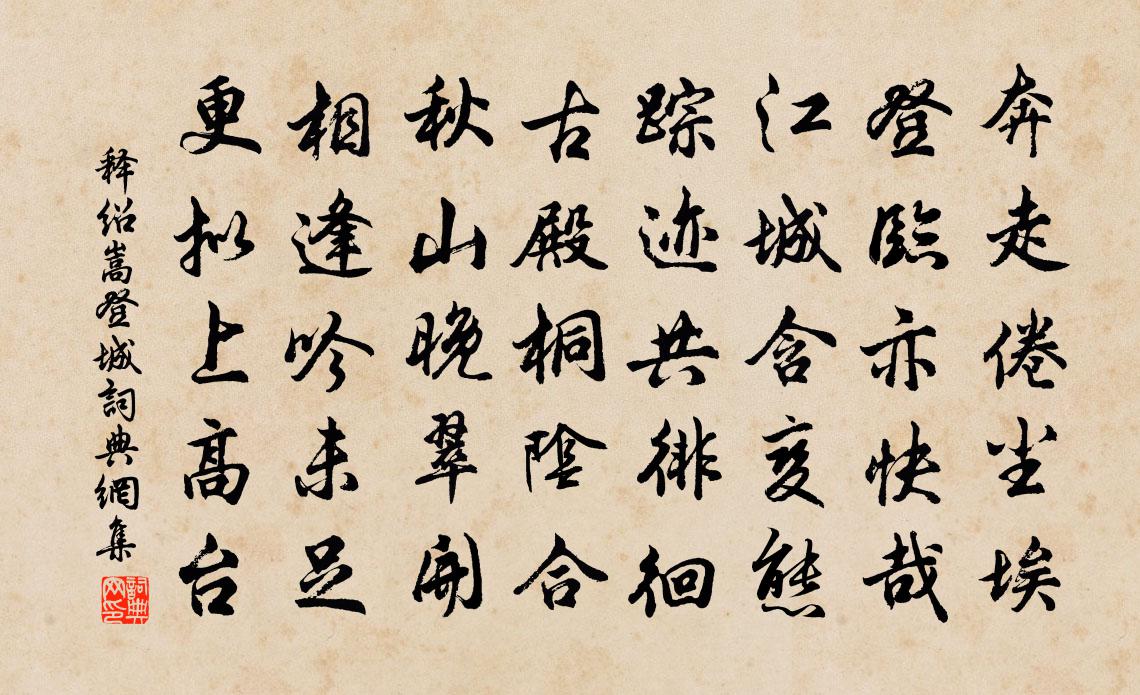 奔走倦尘埃
登临亦快哉
江城含变态
踪迹共徘徊
古殿桐阴合
秋山晚翠开
相逢吟未足
更拟上高台
释绍嵩登城詞典網集
詞典